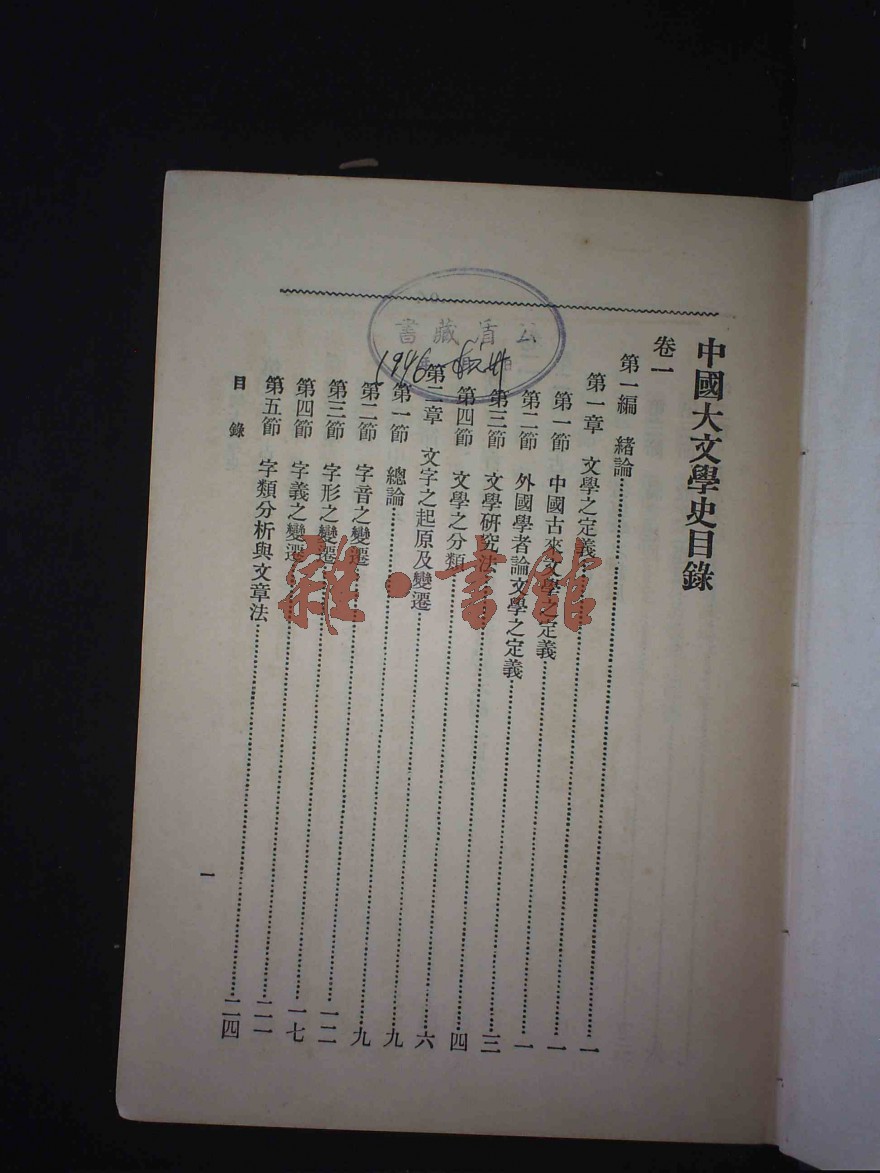 中國大文學史目錄
卷一
第一編 緒論……一
第一章 文學之定義……一
第一節 中國古來文學之定義……一
第二節 外國學者論文學之定義……三
第三節 文學研究法……四
第四節 文學之分類……六
第二章 文字之起原及變遷……九
第一節 總論……九
第二節 字音之變遷……一二
第三節 字形之變遷……一七
第四節 字義之變遷……二一
第五節 字類分析與文章法……二四
目錄
一
公盾藏書
1946
雜·書館